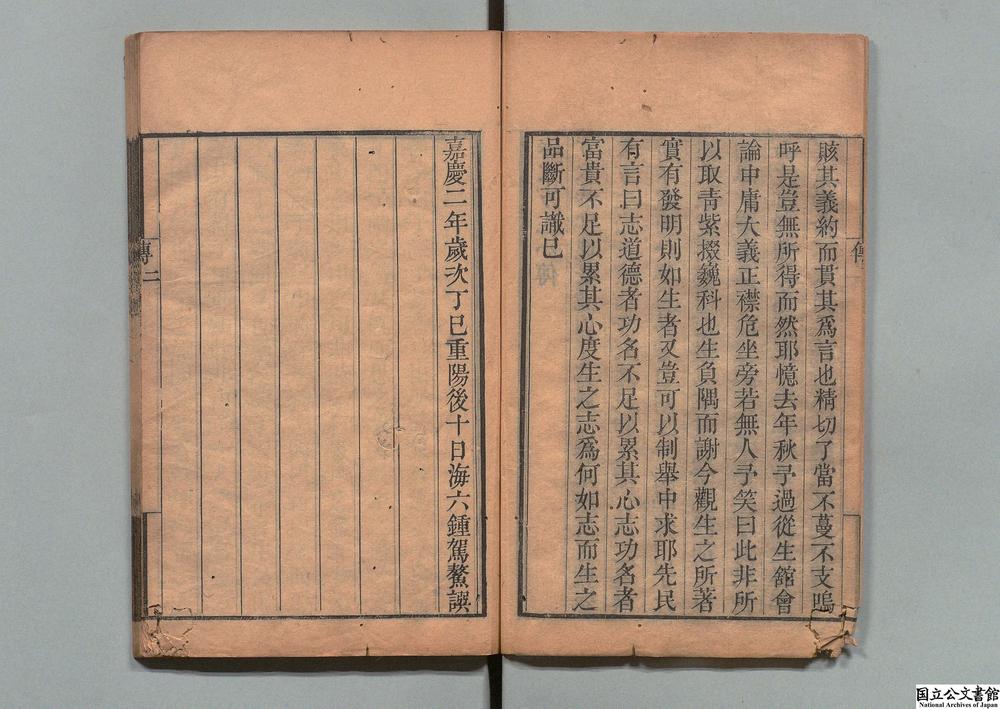 賅其義約而貫其爲言也精切了當不蔓不支嗚
呼是豈無所得而然耶憶去年秋予過從生館會
論中庸大義正襟危坐旁若無人予笑曰此非所
以取青紫掇巍科也生負隅而謝今觀生之所著
實有發明則如生者又豈可以制舉中求耶先民
有言曰志道德者功名不足以累其心志功名者
富貴不足以累其心度生之志爲何如志而生之
品斷可識已
嘉慶二年歲次丁巳重陽後十日海六鍾駕鰲譔
傳二
国立公文書館
National Archives of Japan